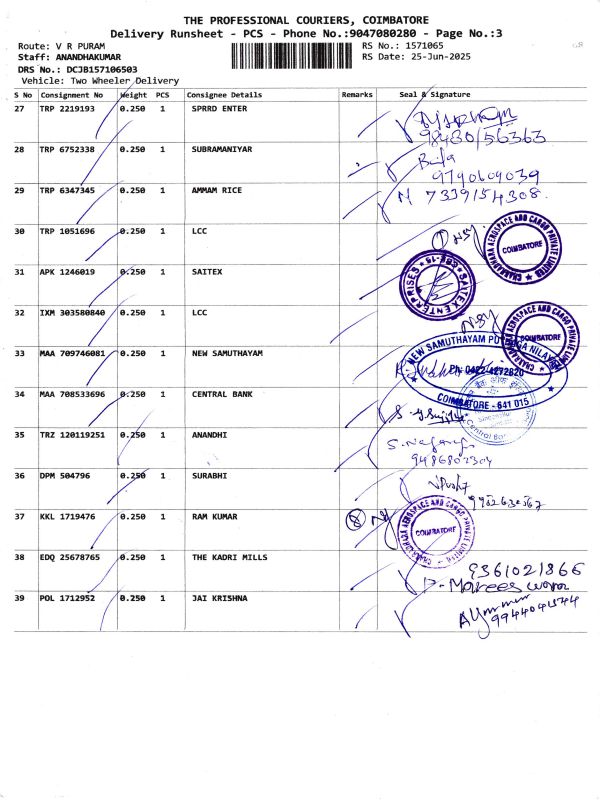 THE PROFESSIONAL COURIERS, COIMBATORE
Delivery Runsheet - PCS - Phone No.:9047080280 - Page No.:3
Route: V R PURAM
RS No.: 1571065
Staff: ANANDHAKUMAR
RS Date: 25-Jun-2025
DRS No.: DCJB157106503
Vehicle: Two Wheeler Delivery
S No Consignment No Weight PCS Consignee Details Remarks Seal & Signature
27 TRP 2219193 0.250 1 SPRRD ENTER
98430/56363
28 TRP 6752338 0.250 1 SUBRAMANIYAR
9790609039
29 TRP 6347345 0.250 1 AMMAM RICE
N 7339154308
30 TRP 1051696 0.250 1 LCC
CHAKRADHARA AEROSPACE AND CARGO PRIVATE LIMITED
COIMBATORE
31 APK 1246019 0.250 1 SAITEX
SAITEX ENTERPRISES
CBE-15
32 IXM 303580840 0.250 1 LCC
CHAKRADHARA AEROSPACE AND CARGO PRIVATE LIMITED
COIMBATORE
33 MAA 709746081 0.250 1 NEW SAMUTHAYAM
NEW SAMUTHAYAM NILAYAM
Ph: 0422-4272820
COIMBATORE - 641 015
34 MAA 708533696 0.250 1 CENTRAL BANK
Central Bank
35 TRZ 120119251 0.250 1 ANANDHI
9486802304
36 DPM 504796 0.250 1 SURABHI
37 KKL 1719476 0.250 1 RAM KUMAR
CHAKRADHARA AEROSPACE AND CARGO PRIVATE LIMITED
COIMBATORE
38 EDQ 25678765 0.250 1 THE KADRI MILLS
9361021866
39 POL 1712952 0.250 1 JAI KRISHNA